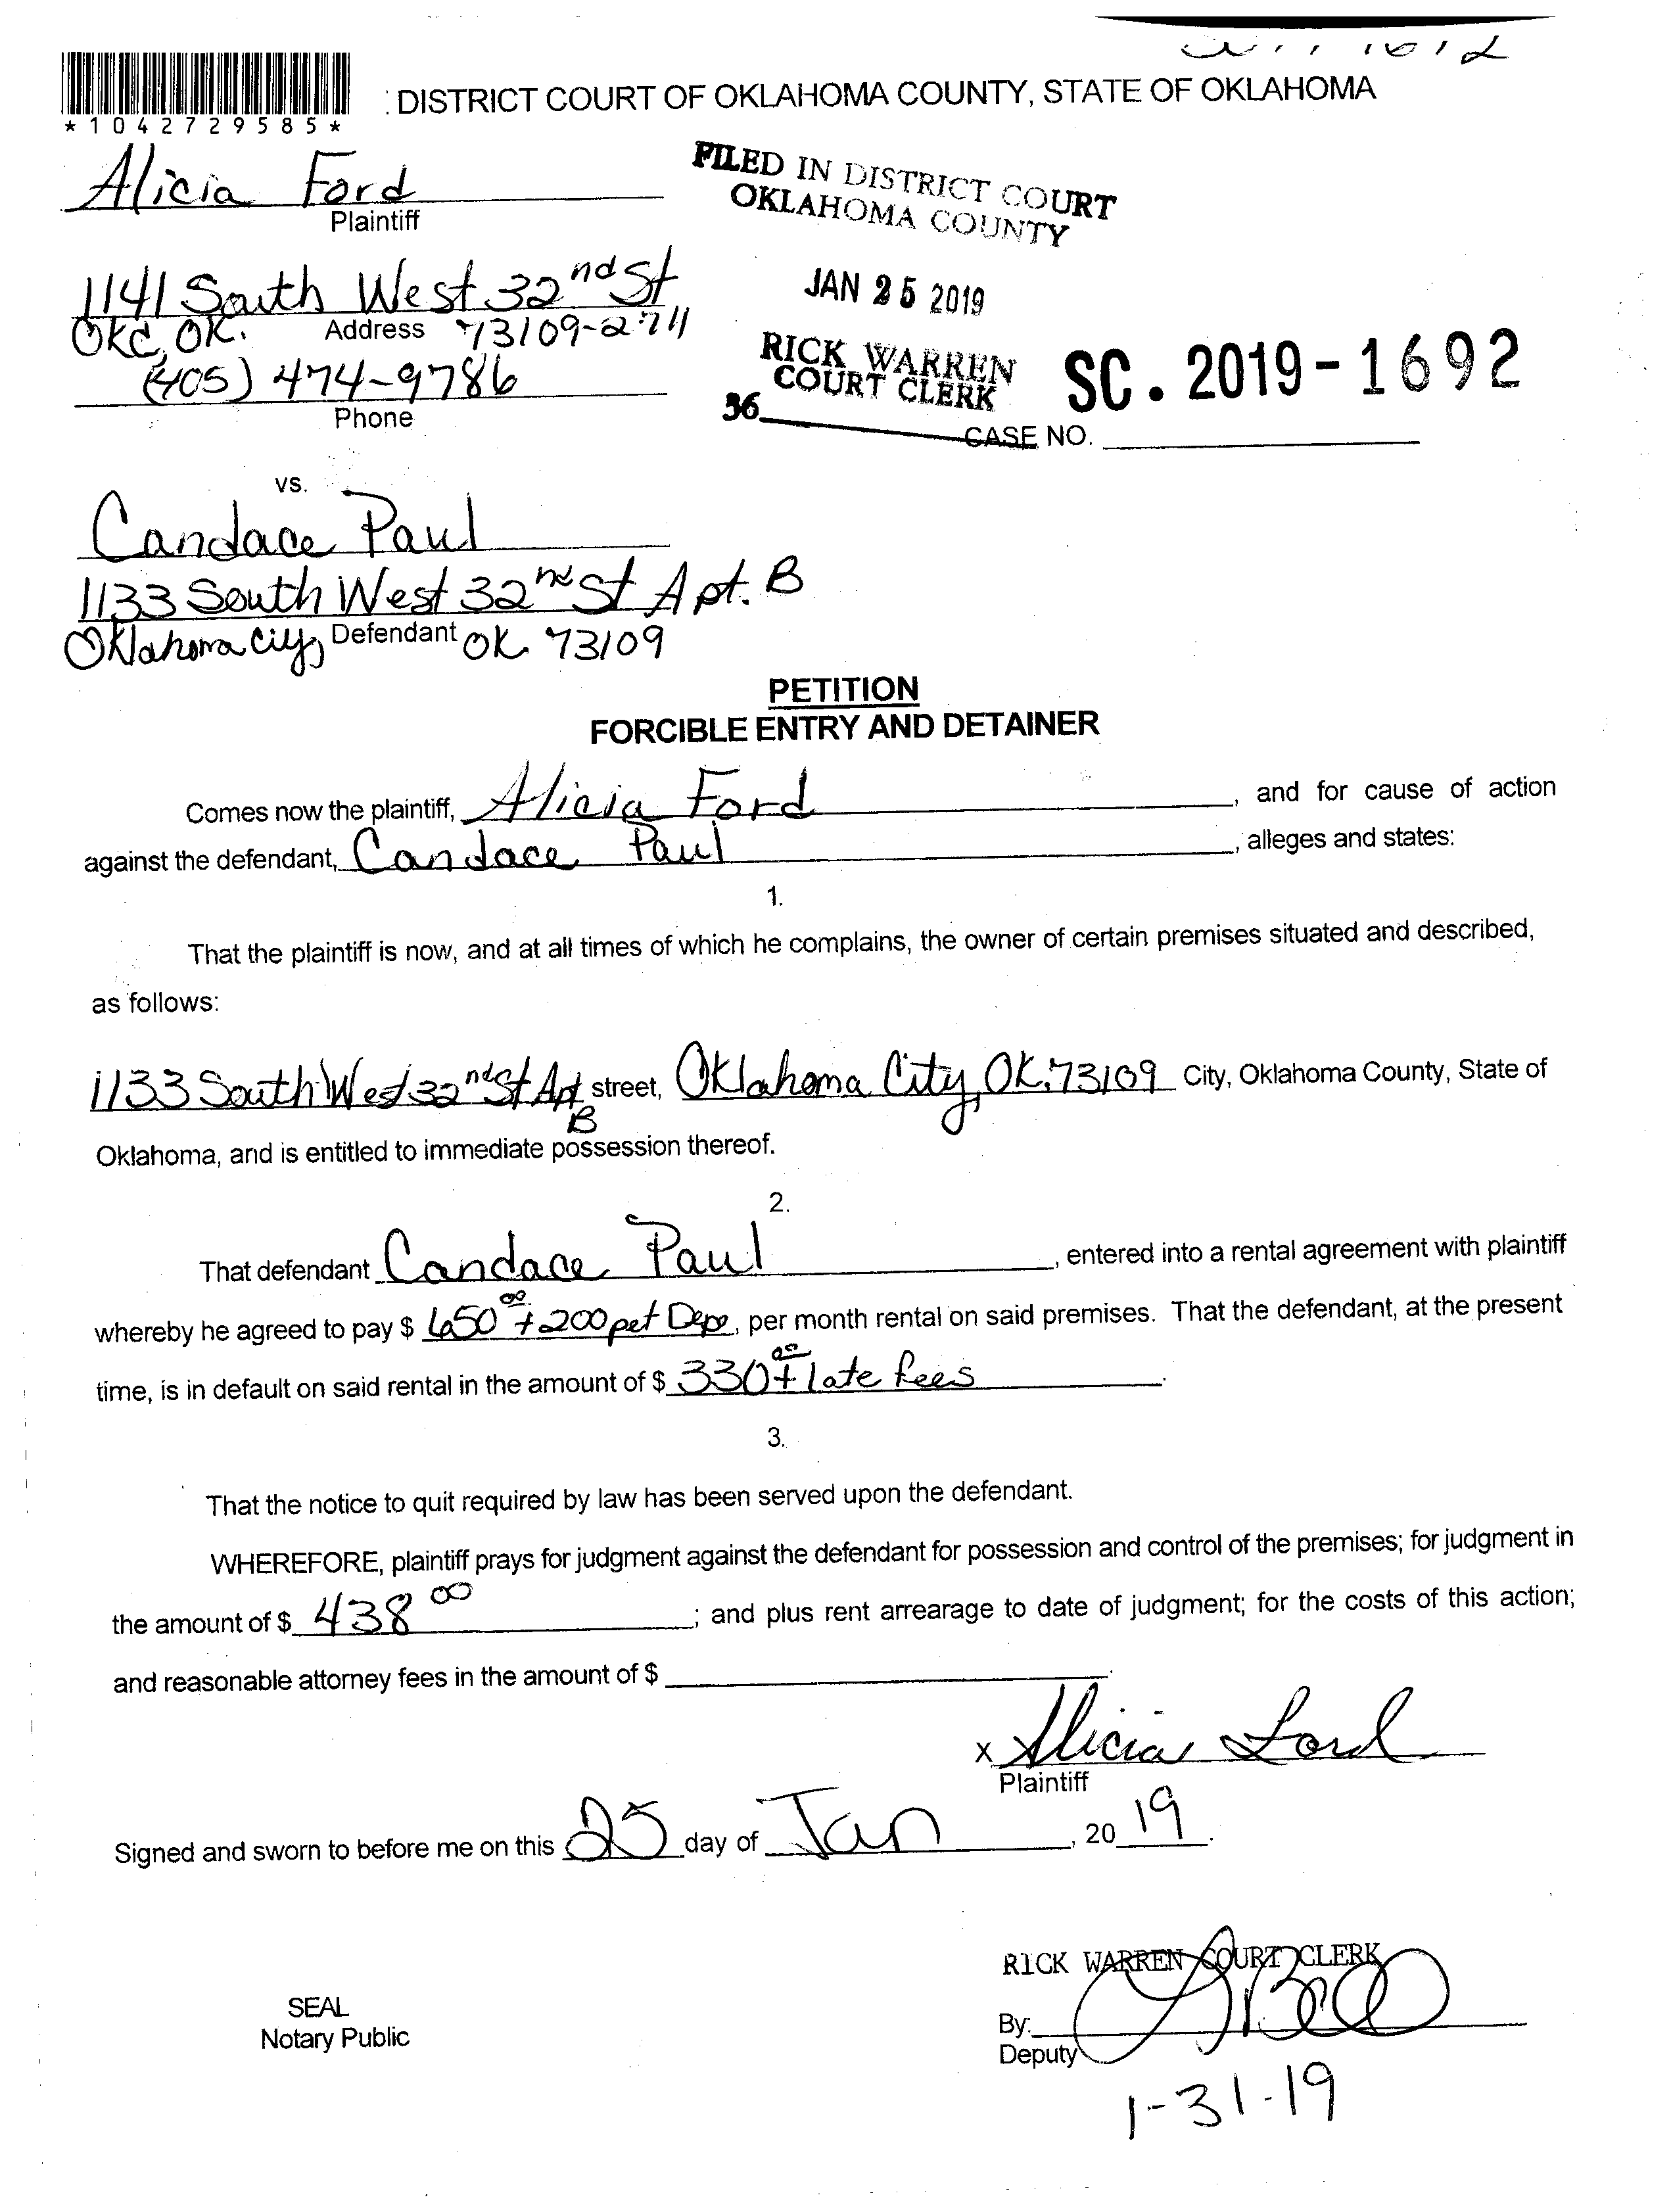 : DISTRICT COURT OF OKLAHOMA COUNTY, STATE OF OKLAHOMA
*1042729585*
Alicia Ford
Plaintiff
FILED IN DISTRICT COURT
OKLAHOMA COUNTY
1141 South West 32nd St
OKC, OK. Address 73109-2711
JAN 25 2019
(405) 474-9786
Phone
RICK WARREN
COURT CLERK
SC. 2019-1692
36
CASE NO.
vs.
Candace Paul
1133 South West 32nd St Apt. B
Oklahoma City, Defendant OK. 73109
PETITION
FORCIBLE ENTRY AND DETAINER
Comes now the plaintiff, Alicia Ford, and for cause of action
against the defendant, Candace Paul, alleges and states:
1.
That the plaintiff is now, and at all times of which he complains, the owner of certain premises situated and described,
as follows:
1133 South West 32nd St Apt street, Oklahoma City, OK. 73109 City, Oklahoma County, State of
B
Oklahoma, and is entitled to immediate possession thereof.
2.
That defendant Candace Paul, entered into a rental agreement with plaintiff
whereby he agreed to pay $ 650 00 + 200 pet Depo, per month rental on said premises. That the defendant, at the present
time, is in default on said rental in the amount of $ 330 00 + late fees.
3.
That the notice to quit required by law has been served upon the defendant.
WHEREFORE, plaintiff prays for judgment against the defendant for possession and control of the premises; for judgment in
the amount of $ 438 00; and plus rent arrearage to date of judgment; for the costs of this action;
and reasonable attorney fees in the amount of $
x Alicia Ford
Plaintiff
Signed and sworn to before me on this 25 day of Jan, 2019.
RICK WARREN COURT CLERK
SEAL
Notary Public
By:
Deputy
1-31-19